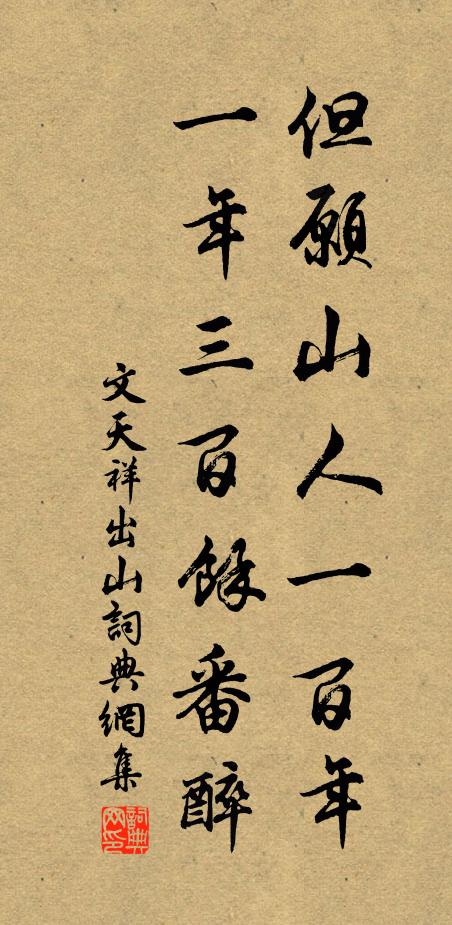 但願山人一百年
一年三百餘番醉
文天祥出山詞典網集
詞典網印